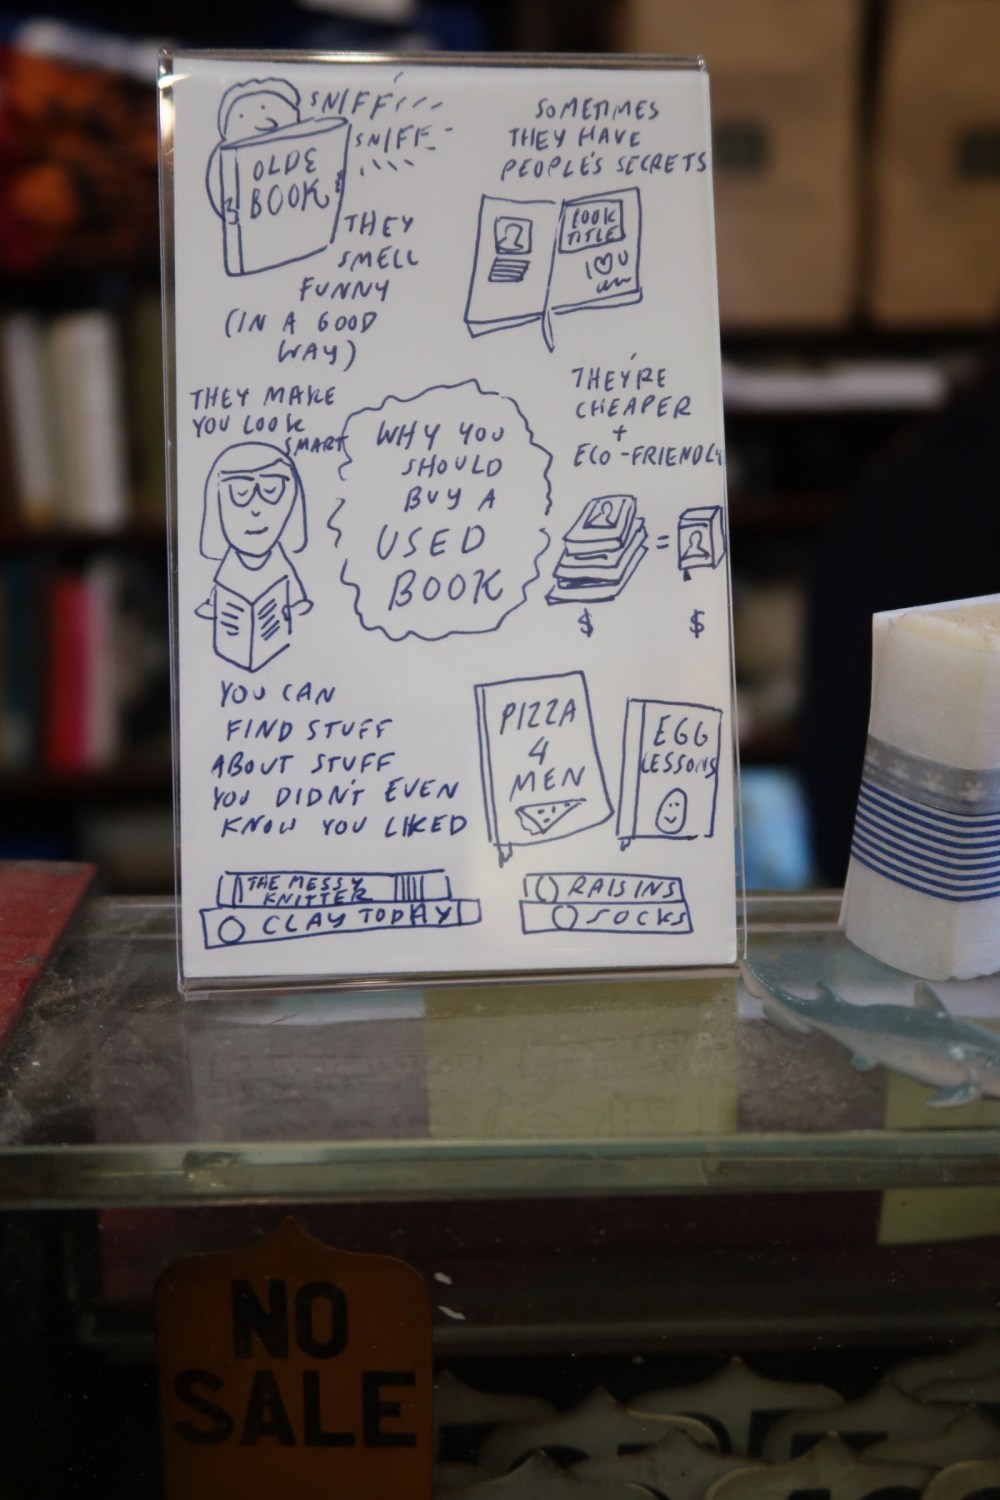 SNIFF
SNIFF
OLDE
BOOK
THEY
SMELL
FUNNY
(IN A GOOD
WAY)
SOMETIMES
THEY HAVE
PEOPLE'S SECRETS
BOOK
TITLE
I ♡ U
THEY MAKE
YOU LOOK
SMART
WHY YOU
SHOULD
BUY A
USED
BOOK
THEY'RE
CHEAPER
+
ECO-FRIENDLY
=
$ $
YOU CAN
FIND STUFF
ABOUT STUFF
YOU DIDN'T EVEN
KNOW YOU LIKED
PIZZA
4
MEN
EGG
LESSONS
THE MESSY
KNITTER
CLAY TODAY
RAISINS
SOCKS
NO
SALE